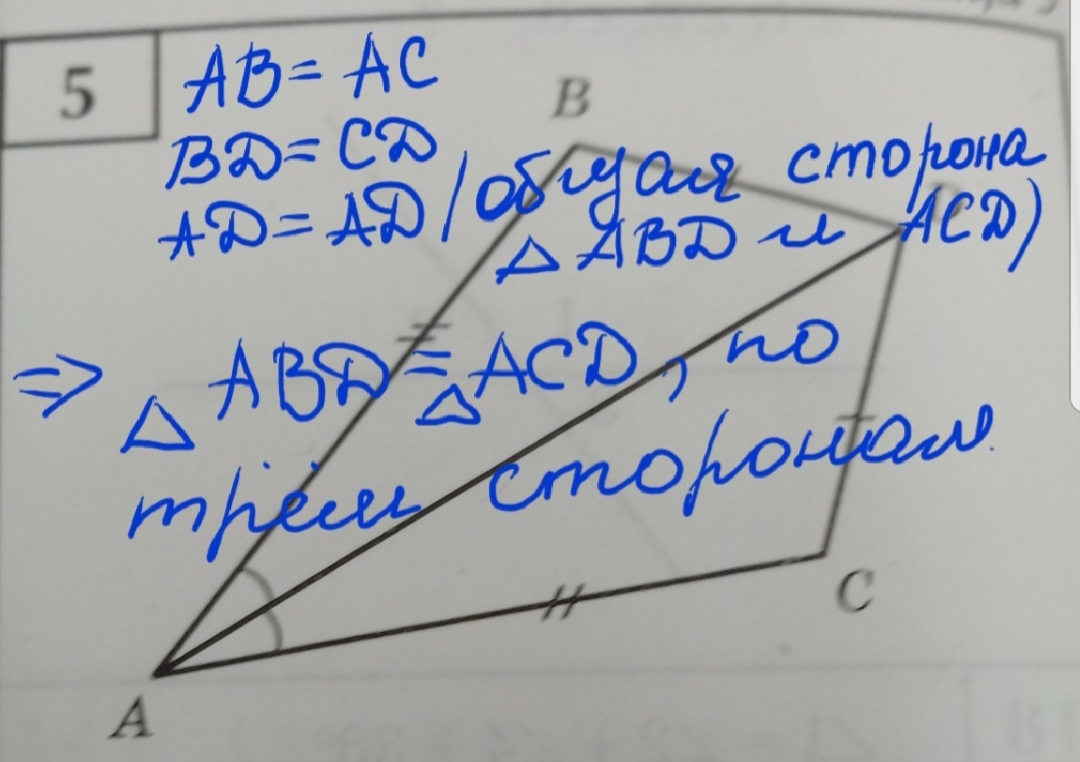 5
AB = AC
B
BD = CD
AD = AD / общая сторона
△ ABD и ACD)
⇒ △ ABD = △ ACD, по
трём сторонам.
C
A